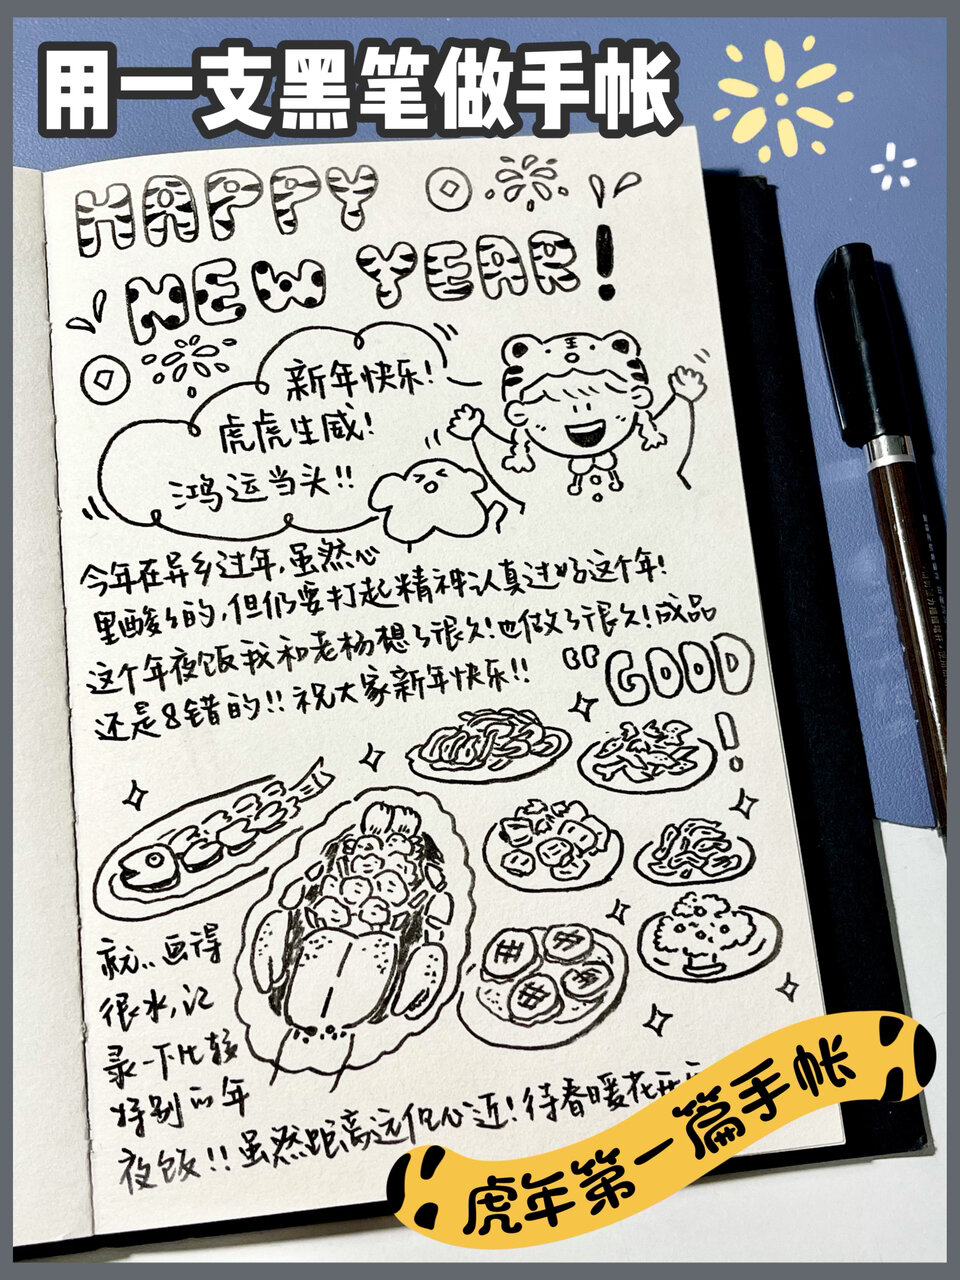 用一支黑笔做手帐
HAPPY
NEW YEAR!
新年快乐!
虎虎生威!
鸿运当头!!
王
今年在异乡过年,虽然心
里酸酸的,但仍要打起精神认真过好这个年!
这个年夜饭我和老杨想了很久!也做了很久!成品
还是8错的!!祝大家新年快乐!!
"GOOD
!
就..画得
很水,记
录一下比较
特别的年
夜饭!!虽然距离远但心近!待春暖花开
虎年第一篇手帐